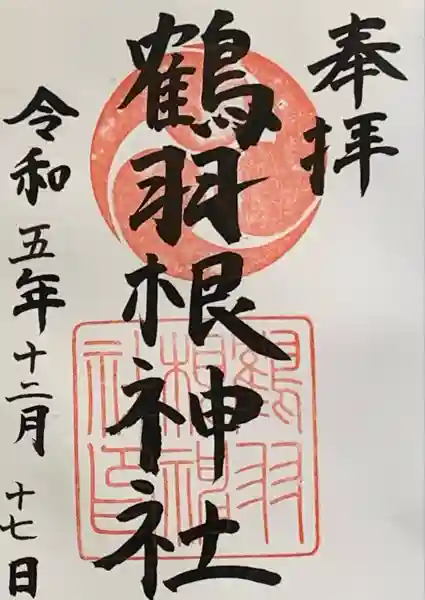 奉拝
鶴羽根神社
令和五年十二月十七日
鶴羽
根神
社印